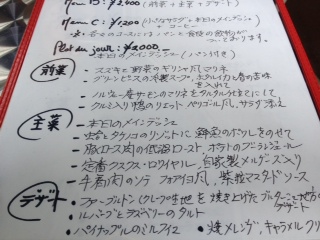 Menu B: ¥2,400 (前菜 + 主菜 + デザート)
Menu C: ¥1,200 (小さなサラダ + 本日のメインディシュ
+ コーヒー)
Plat du jour: ¥2,000
本日のメインディシュ (パン付き)
前菜
- スズキと野菜のギリシャ風マリネ
- グリーンピースの冷製スープ、
- ノルウェー産サーモンのマリネをタルタル仕立てにして
- クルミ入り鴨のリエット ペリゴール風、サラダ添え
主菜
- 本日のメインディシュ
- タケノコのリゾットに鮮魚のポワレをのせて
- 豚ロース肉の低温ロースト ポテトのブランジェール
- 定番クスクス・ロワイヤル、自家製メルゲーズ入り
- 牛肩肉のソテ フォアイヨ風、紫粒マスタードソース
デザート
- ファーブルトン (クレープの生地を焼き上げたブルターニュ地方の
デザート)
- ルバーブとラズベリーのタルト
- パイナップルのミルフイユ • 焼メレンゲ、キャラメルクリ